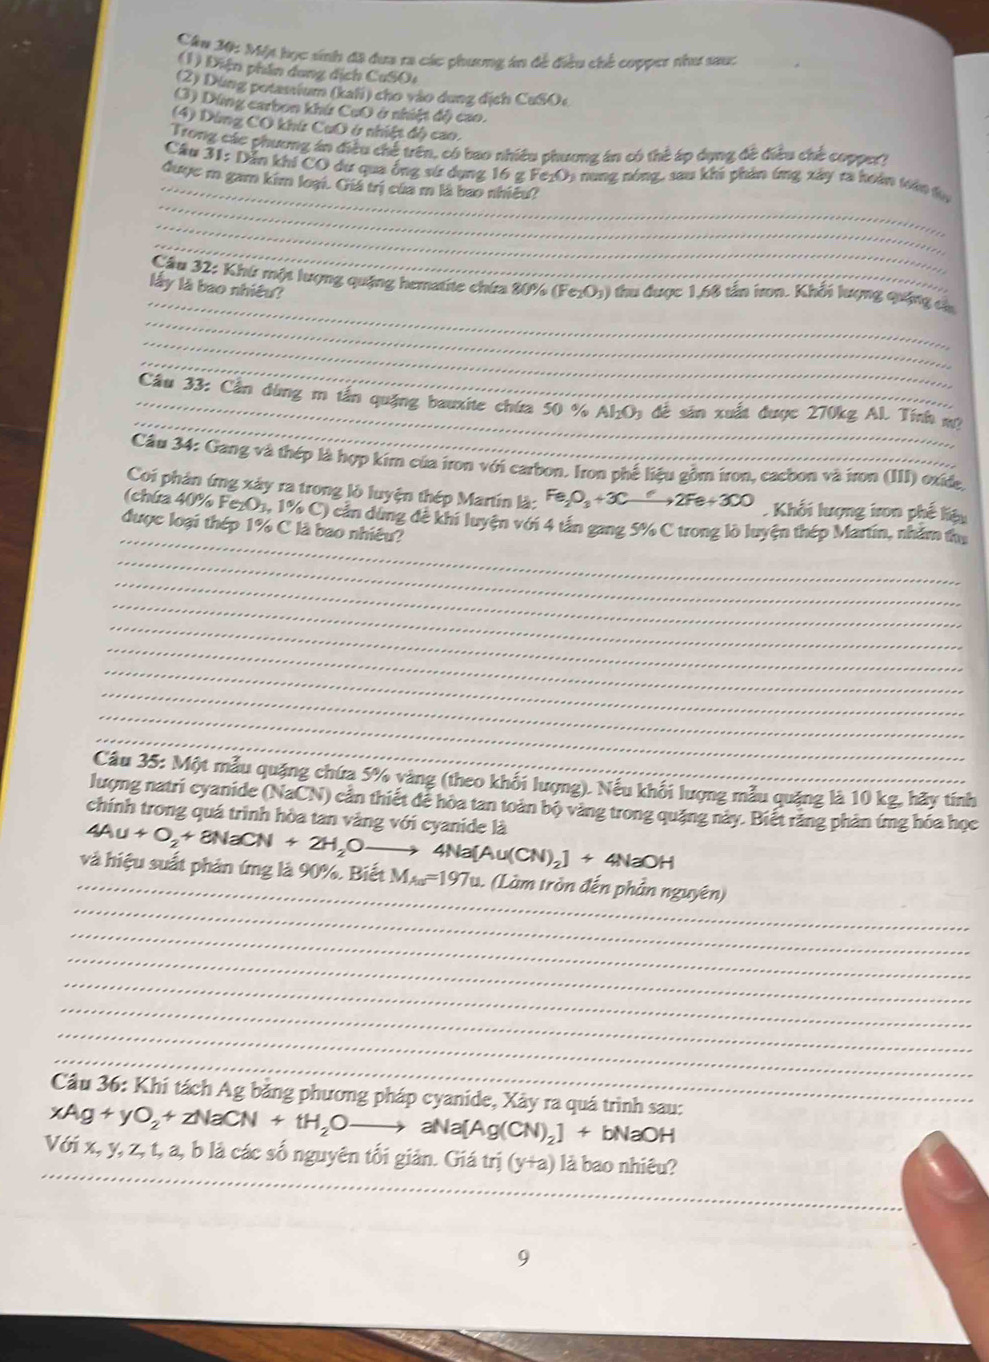 Câu 30: Một học sinh đã đưa ra các phương án để điều chế copper như sau:
(1) Điện phân dung dịch CuSO₄
(2) Dùng potassium (kali) cho vào dung dịch CuSO₄
(3) Dùng carbon khử CuO ở nhiệt độ cao.
(4) Dùng CO khử CuO ở nhiệt độ cao.
Trong các phương án điều chế trên, có bao nhiêu phương án có thể áp dụng để điều chế copper?
Câu 31: Dẫn khí CO dư qua ống sứ đựng 16 g Fe₂O₃ nung nóng, sau khi phản ứng xảy ra hoàn toàn thu
được m gam kim loại. Giá trị của m là bao nhiêu?
Câu 32: Khử một lượng quặng hematite chứa 80% (Fe₂O₃) thu được 1,68 tấn iron. Khối lượng quặng cần
lấy là bao nhiêu?
Câu 33: Cần dùng m tấn quặng bauxite chứa 50 % Al₂O₃ để sản xuất được 270kg Al. Tính m?
Câu 34: Gang và thép là hợp kim của iron với carbon. Iron phế liệu gồm iron, cacbon và iron (III) oxide.
Coi phản ứng xảy ra trong lò luyện thép Martin là: Fe₂O₃ + 3C ⟶ 2Fe + 3CO . Khối lượng iron phế liệu
(chứa 40% Fe₂O₃, 1% C) cần dùng để khi luyện với 4 tấn gang 5% C trong lò luyện thép Martin, nhằm thu
được loại thép 1% C là bao nhiêu?
Câu 35: Một mẫu quặng chứa 5% vàng (theo khối lượng). Nếu khối lượng mẫu quặng là 10 kg, hãy tính
lượng natri cyanide (NaCN) cần thiết để hòa tan toàn bộ vàng trong quặng này. Biết rằng phản ứng hóa học
chính trong quá trình hòa tan vàng với cyanide là
4Au + O₂ + 8NaCN + 2H₂O ⟶ 4Na[Au(CN)₂] + 4NaOH
và hiệu suất phản ứng là 90%. Biết M_Au=197u. (Làm tròn đến phần nguyên)
Câu 36: Khi tách Ag bằng phương pháp cyanide, Xảy ra quá trình sau:
xAg + yO₂ + zNaCN + tH₂O ⟶ aNa[Ag(CN)₂] + bNaOH
Với x, y, z, t, a, b là các số nguyên tối giản. Giá trị (y+a) là bao nhiêu?
9